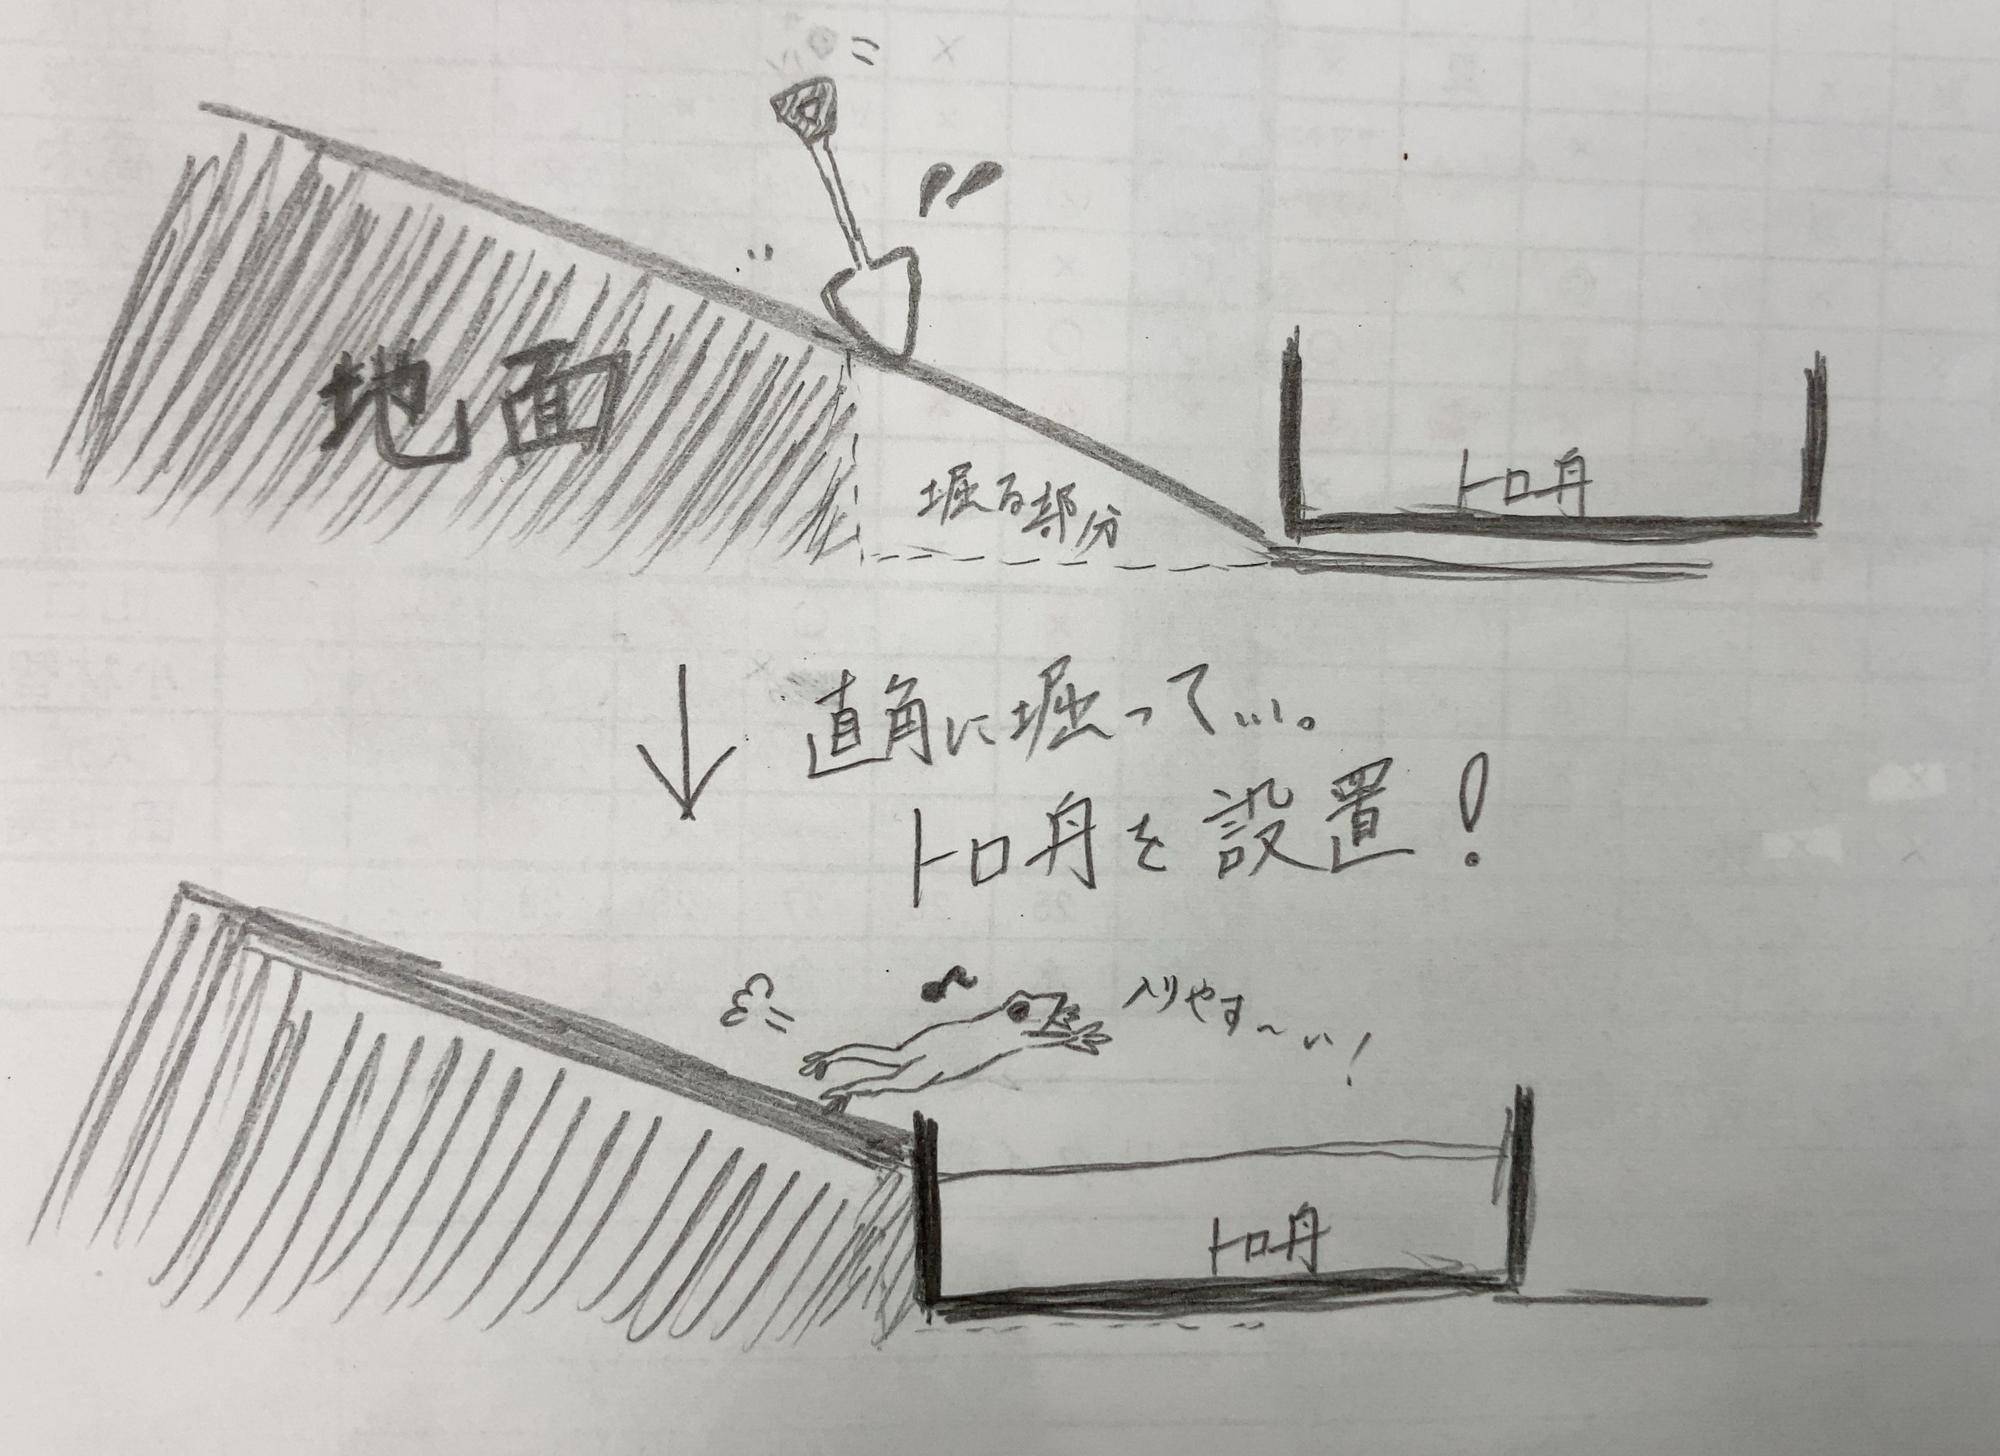 地面
掘る部分
トロ舟
直角に掘って…。
トロ舟を設置!
入りやす~い!
トロ舟